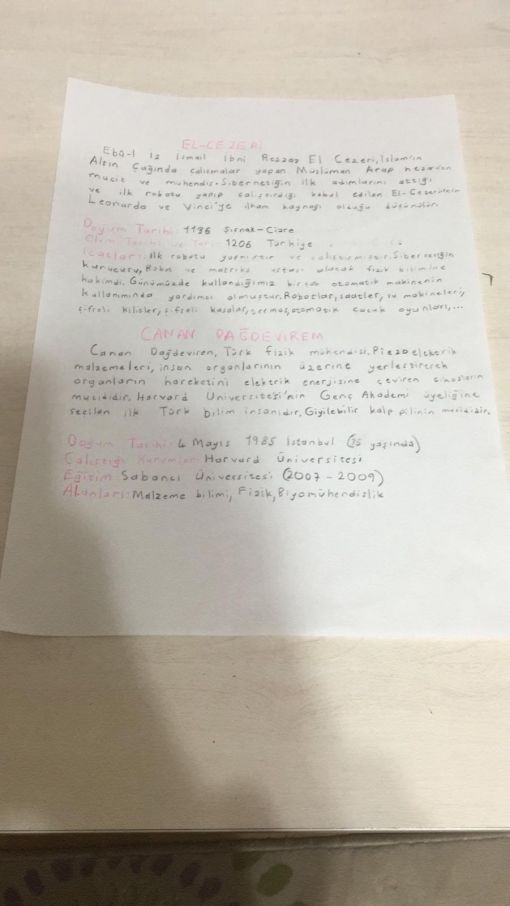 EL-CEZERİ
Ebû-l İz İsmail İbni Rezzaz El Cezeri, İslam'ın
Altın Çağında çalışmalar yapan Müslüman Arap hezarfen
mucit ve mühendis. Sibernetiğin ilk adımlarını attığı
ve ilk robotu yapıp çalıştırdığı kabul edilen El-Cezeri'nin
Leonardo ve Vinci'ye ilham kaynağı olduğu düşünülür.
Doğum Tarihi: 1136 Şırnak-Cizre
Ölüm Tarihi ve Yeri: 1206 Türkiye
İcatları: İlk robotu yapmıştır ve çalıştırmıştır. Sibernetiğin
kurucusu, Robot ve matriks ustası olarak fizik bilimine
hakimdi. Günümüzde kullandığımız birçok otomatik makinenin
kullanımında yardımcı olmuştur. Robotlar, saatler, su makineleri,
şifreli kilitler, şifreli kasalar, termos, otomatik çocuk oyunları,...
CANAN DAĞDEVİREM
Canan Dağdeviren, Türk fizik mühendisi. Piezoelektrik
malzemeleri, insan organlarının üzerine yerleştirerek
organların hareketini elektrik enerjisine çeviren cihazların
mucididir. Harvard Üniversitesi'nin Genç Akademi üyeliğine
seçilen ilk Türk bilim insanıdır. Giyilebilir kalp pilinin mucididir.
Doğum Tarihi: 4 Mayıs 1985 İstanbul (35 yaşında)
Çalıştığı Kurumlar: Harvard Üniversitesi
Eğitim: Sabancı Üniversitesi (2007-2009)
ALanları: Malzeme bilimi, Fizik, Biyomühendislik